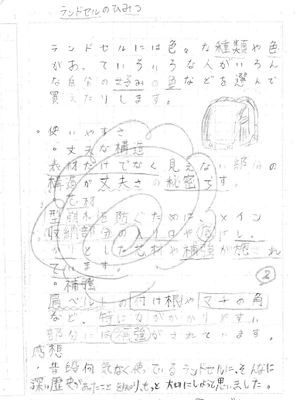 ランドセルのひみつ
ランドセルには色々な種類や色
があって いろいろな人がいろん
な自分の好みの色などを選んで
買えたりします。
・使いやすさ
・丈夫な構造
素材だけでなく見えない部分の
構造が丈夫さの秘密です。
型崩れを防ぐために、メイン
収納部分の入り口や
芯材や補強が
ています。
・補強
肩ベルトの付け根やマチの角
など、特に
部分には補強がされています。
②
感想
・普段何気なく使っているランドセルに、そんなに
深い歴史があったこと 大切にしようと思いました。